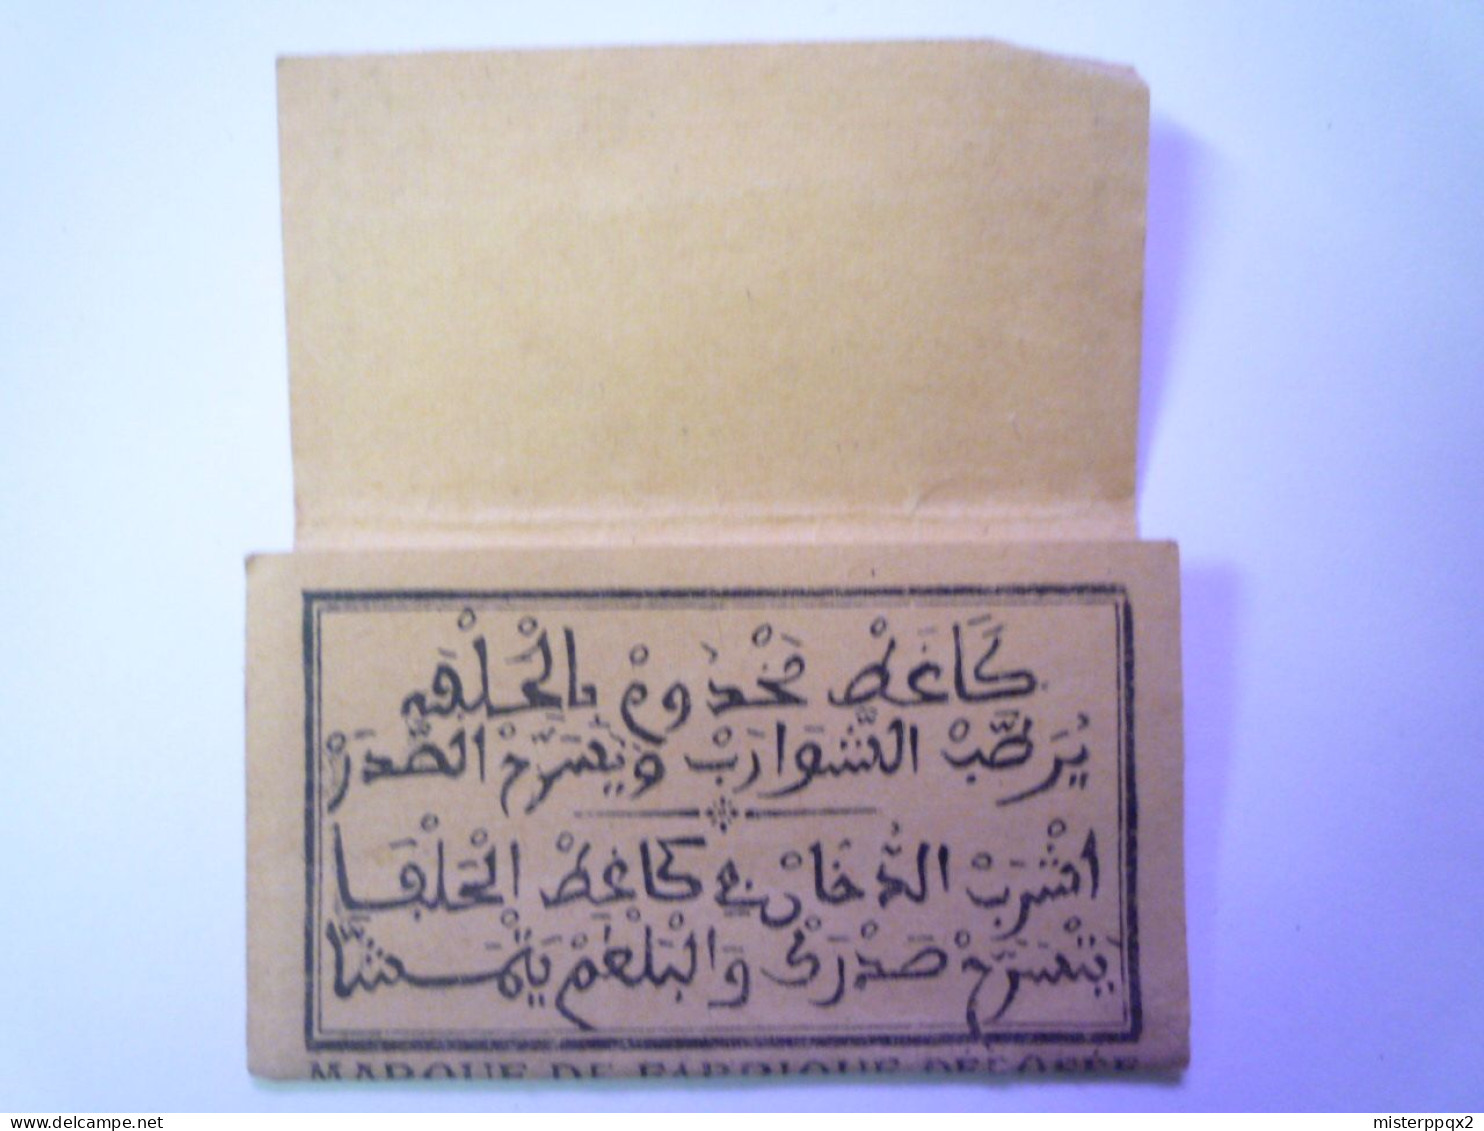 كَاغَطْ مَخْدُومْ بالْحَلْفَه
يُرَطَّبْ الشَّوَارَبْ وَيُسَرَّحْ الصَّدَرْ
اشْرَبْ الدُّخَانْ في كَاغِطْ الْحَلْفَا
يَتْسَرَّحْ صَدْرَكْ وَالْبَلْغَمْ يَتْمَشَّا
MARQUE DE FABRIQUE DÉPOSÉE
delcampe.net
misterppqx2